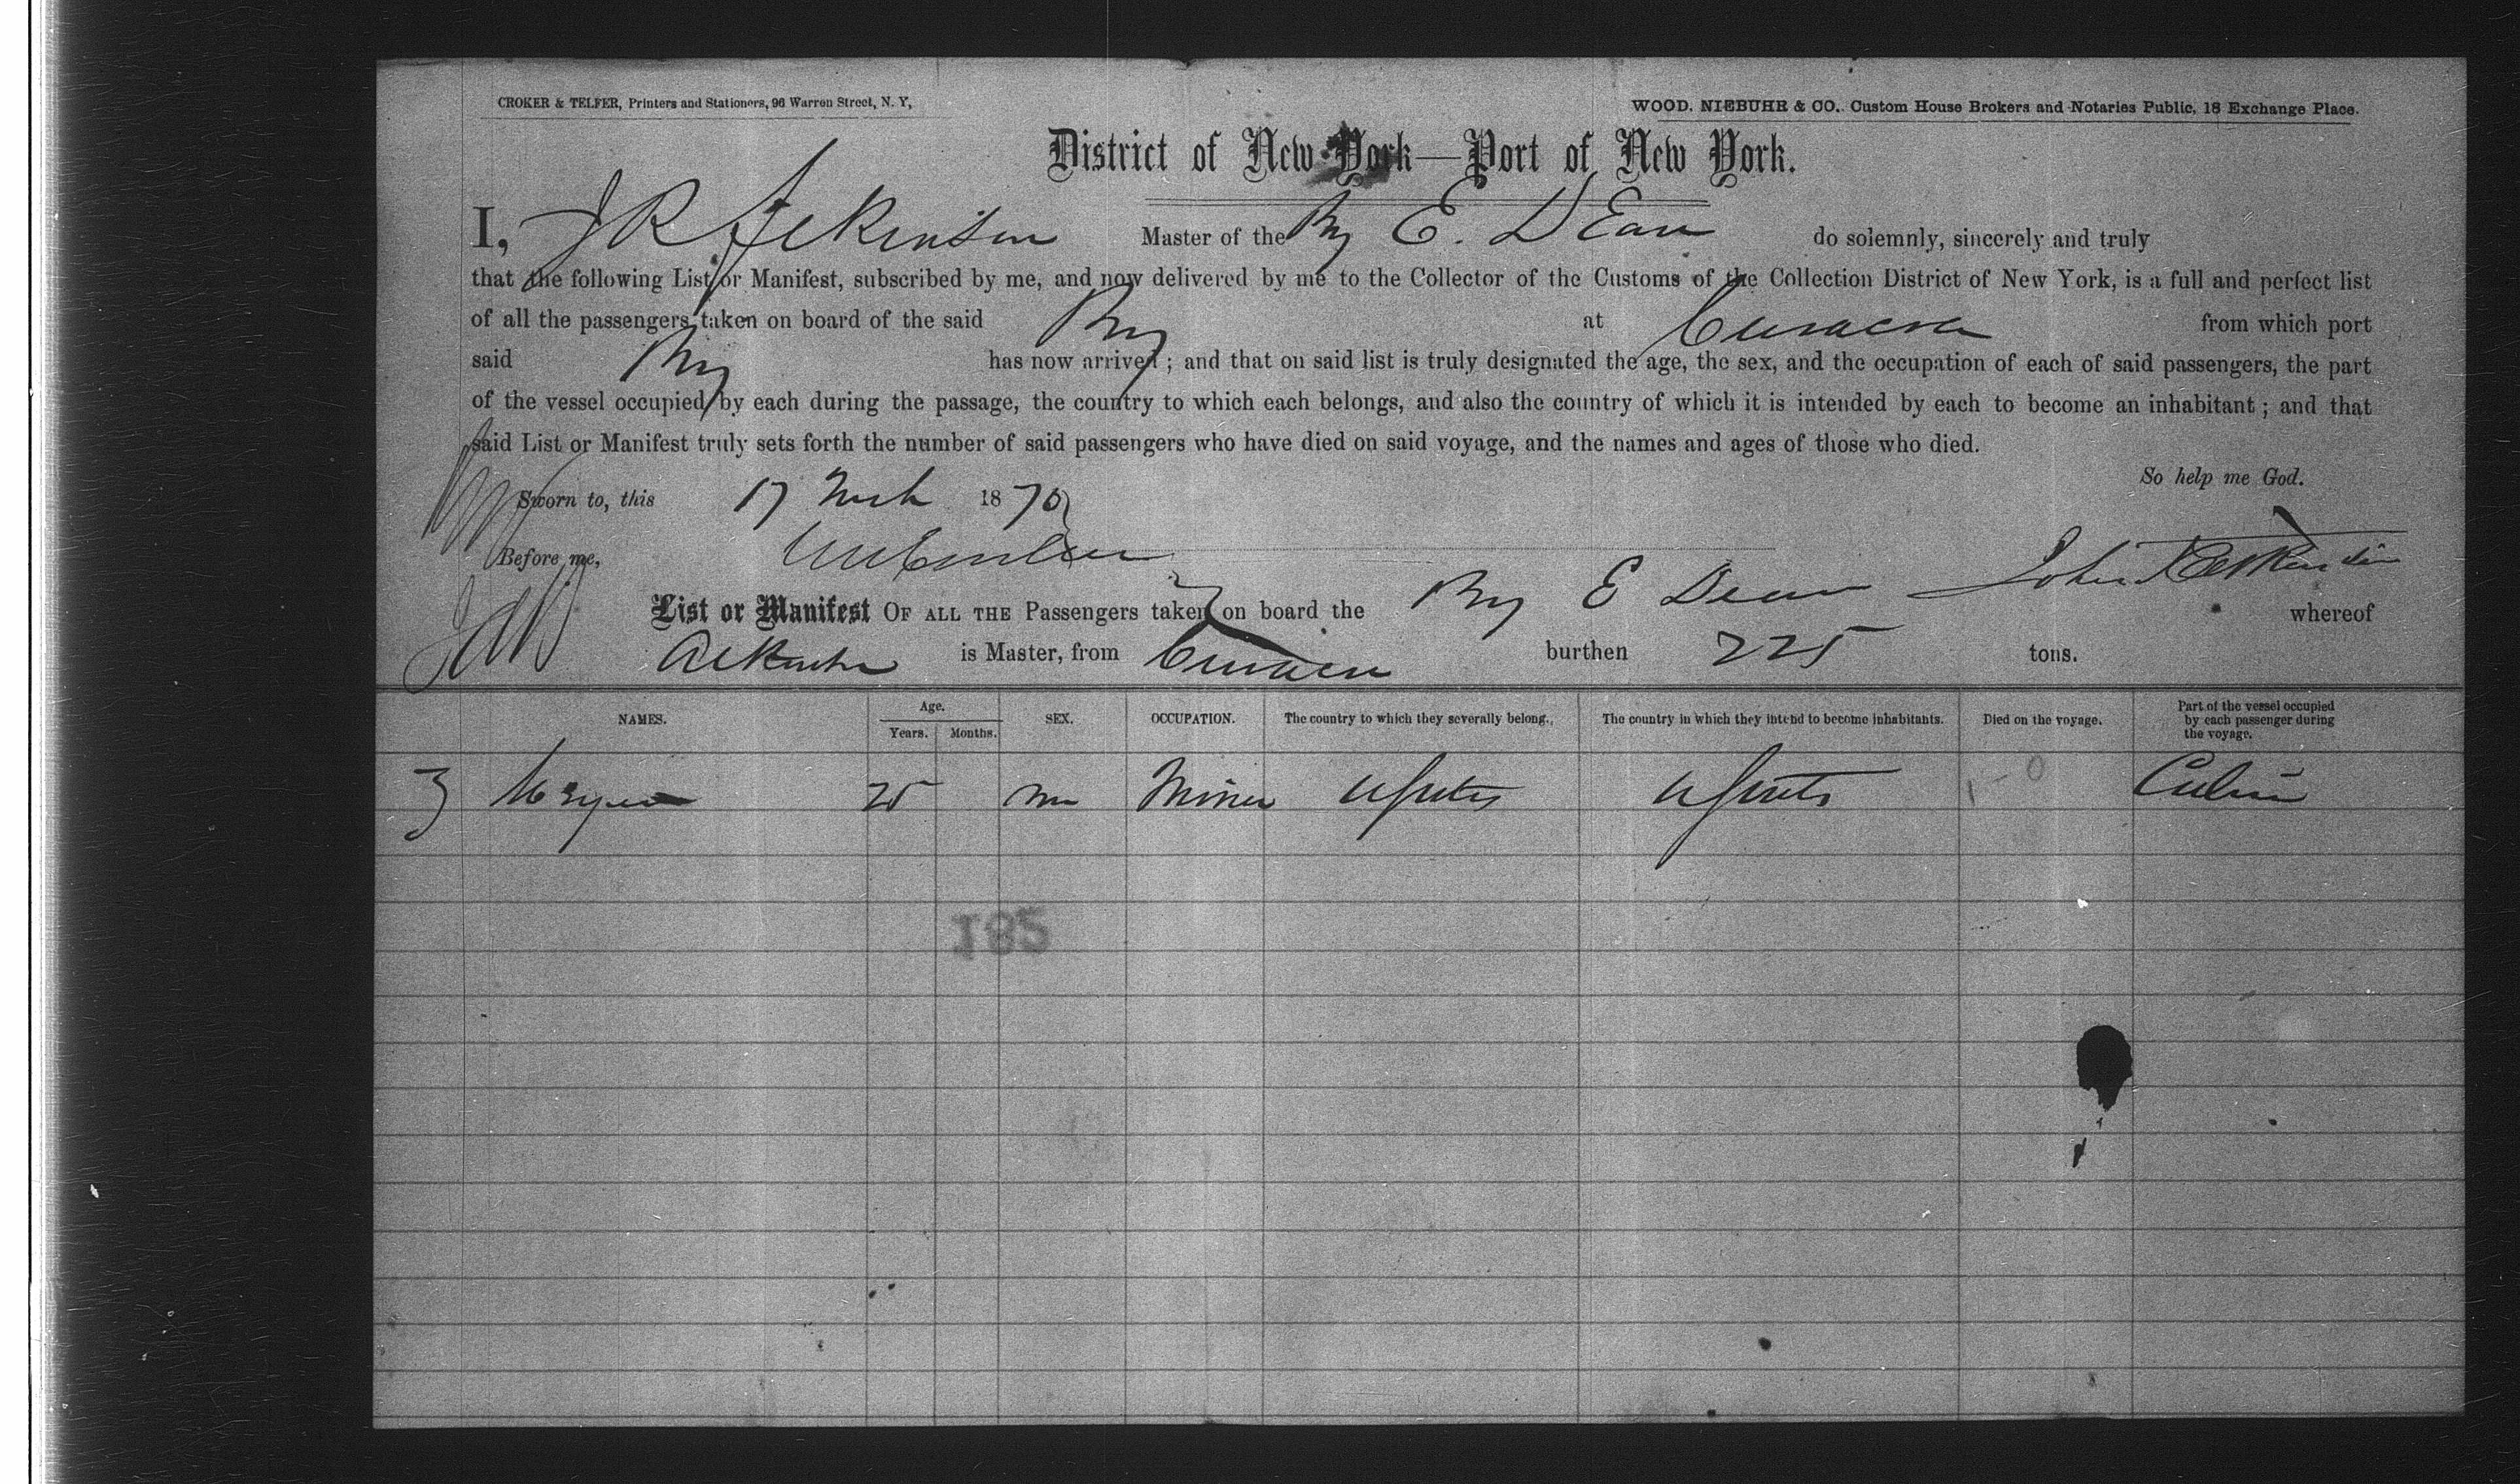 CROKER & TELFER, Printers and Stationers, 96 Warren Street, N. Y,
WOOD. NIEBUHR & CO.. Custom House Brokers and Notaries Public, 18 Exchange Place.
District of New York—Port of New York.
I, J R Atkinson Master of the Brg E. Dean do solemnly, sincerely and truly
that the following List or Manifest, subscribed by me, and now delivered by me to the Collector of the Customs of the Collection District of New York, is a full and perfect list
of all the passengers taken on board of the said Brg at Curacoa from which port
said Brg has now arrived; and that on said list is truly designated the age, the sex, and the occupation of each of said passengers, the part
of the vessel occupied by each during the passage, the country to which each belongs, and also the country of which it is intended by each to become an inhabitant; and that
said List or Manifest truly sets forth the number of said passengers who have died on said voyage, and the names and ages of those who died.
So help me God.
Sworn to, this 17 Mch 1870
Before me,
John R Atkinson
List or Manifest OF ALL THE Passengers taken on board the Brg E Dean whereof
Atkinson is Master, from Curacoa burthen 225 tons.
NAMES. Age. Years. Months. SEX. OCCUPATION. The country to which they severally belong. The country in which they intend to become inhabitants. Died on the voyage. Part of the vessel occupied by each passenger during the voyage.
25 m Miner U States U States Cabin
185